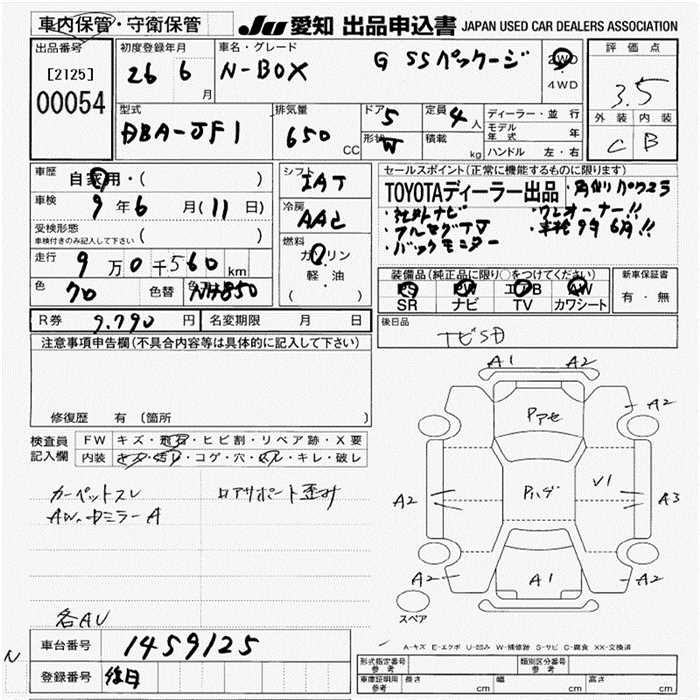 車内保管・守衛保管 JU 愛知 出品申込書 JAPAN USED CAR DEALERS ASSOCIATION
出品番号 [2125] 00054
初度登録年月 26 6 月
車名・グレード N-BOX G SSパッケージ
2WD・4WD
評価点 3.5
外装 内装
C B
型式 DBA-JF1
排気量 650 CC
ドア 5 定員 4人
形状 W 積載 kg
ディーラー・並行
モデル年式 年
ハンドル 左・右
車歴 自家用・( )
車検 9年6月(11日)
受検形態 ( )
車検付きのみ記入して下さい
走行 9万0千560km
色 70 色替 NH850
シフト IAT
冷房 AAC
燃料 ガソリン
軽・油
( )
セールスポイント(正常に機能するものに限ります)
TOYOTAディーラー出品
・社外ナビ ・ワンオーナー!!
・フルセグTV ・車検9年6月!!
・バックモニター
装備品(純正品に限り○をつけてください)
PS PW エアB AW
SR ナビ TV カワシート
新車保証書
有・無
R券 9,790円 名変期限 月 日
後日品
注意事項申告欄(不具合内容等は具体的に記入して下さい)
修復歴 有(箇所 )
検査員記入欄
FW キズ・飛石・ヒビ割・リペア跡・X要
内装 キズ・汚レ・コゲ・穴・スレ・キレ・破レ
カーペットスレ ロアサポート歪み
AW、ドミラーA
各AU
A1 A2
Pアセ
A2
A2 Pハゲ V1 A3
A2 A1 A2
スペア
A-キズ E-エクボ U-凹み W-補修跡 S-サビ C-腐食 XX-交換済
N
車台番号 1459125
登録番号 後日
形式指定番号 参考 類別区分番号 参考
車庫証明用 参考 長さ cm 幅 cm 高さ cm